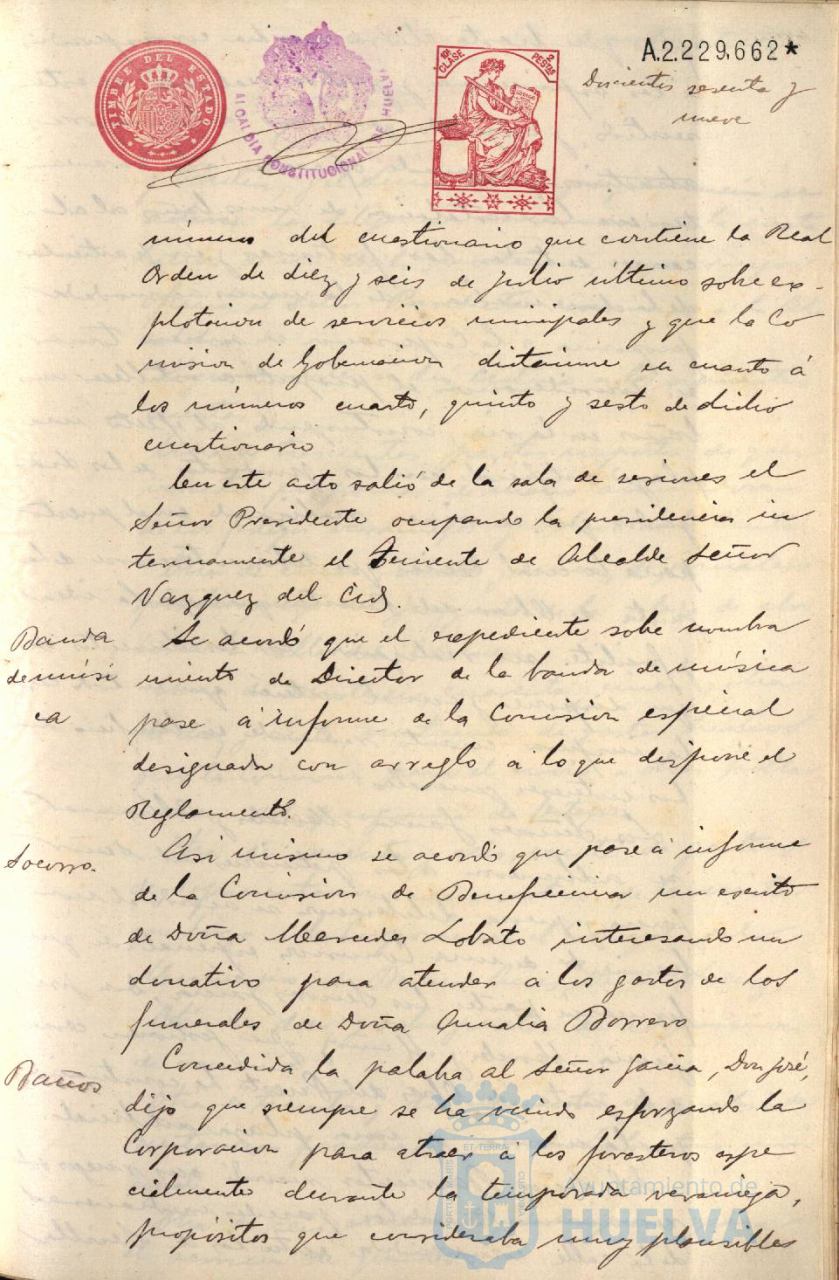 TIMBRE DEL ESTADO
ALCALDIA CONSTITUCIONAL DE HUELVA
10ª CLASE 2 PESTAS
A.2.229,662*
Doscientos sesenta y
nueve
número del cuestionario que contiene la Real
Orden de diez y seis de Julio último sobre ex-
plotacion de servicios municipales y que la Co
mision de Gobernacion dictamine en cuanto á
los números cuarto, quinto y sesto de dicho
cuestionario
En este acto salió de la sala de sesiones el
Señor Presidente ocupando la presidencia in
terinamente el Teniente de Alcalde Señor
Vazquez del Cid.
Banda
de músi
ca
Se acordó que el expediente sobre nombra
miento de Director de la banda de música
pase á informe de la Comision especial
designada con arreglo a lo que dispone el
Reglamento.
Socorro.
Asi mismo se acordó que pase á informe
de la Comision de Beneficencia un escrito
de Doña Mercedes Lobato interesando un
donativo para atender á los gastos de los
funerales de Doña Amalia Borrero
Baños
Concedida la palabra al Señor Garcia, Don José,
dijo que siempre se ha venido esforzando la
Corporacion para atraer á los forasteros espe
cialmente durante la temporada veraniega,
propósitos que consideraba muy plausibles
Ayuntamiento de
HUELVA